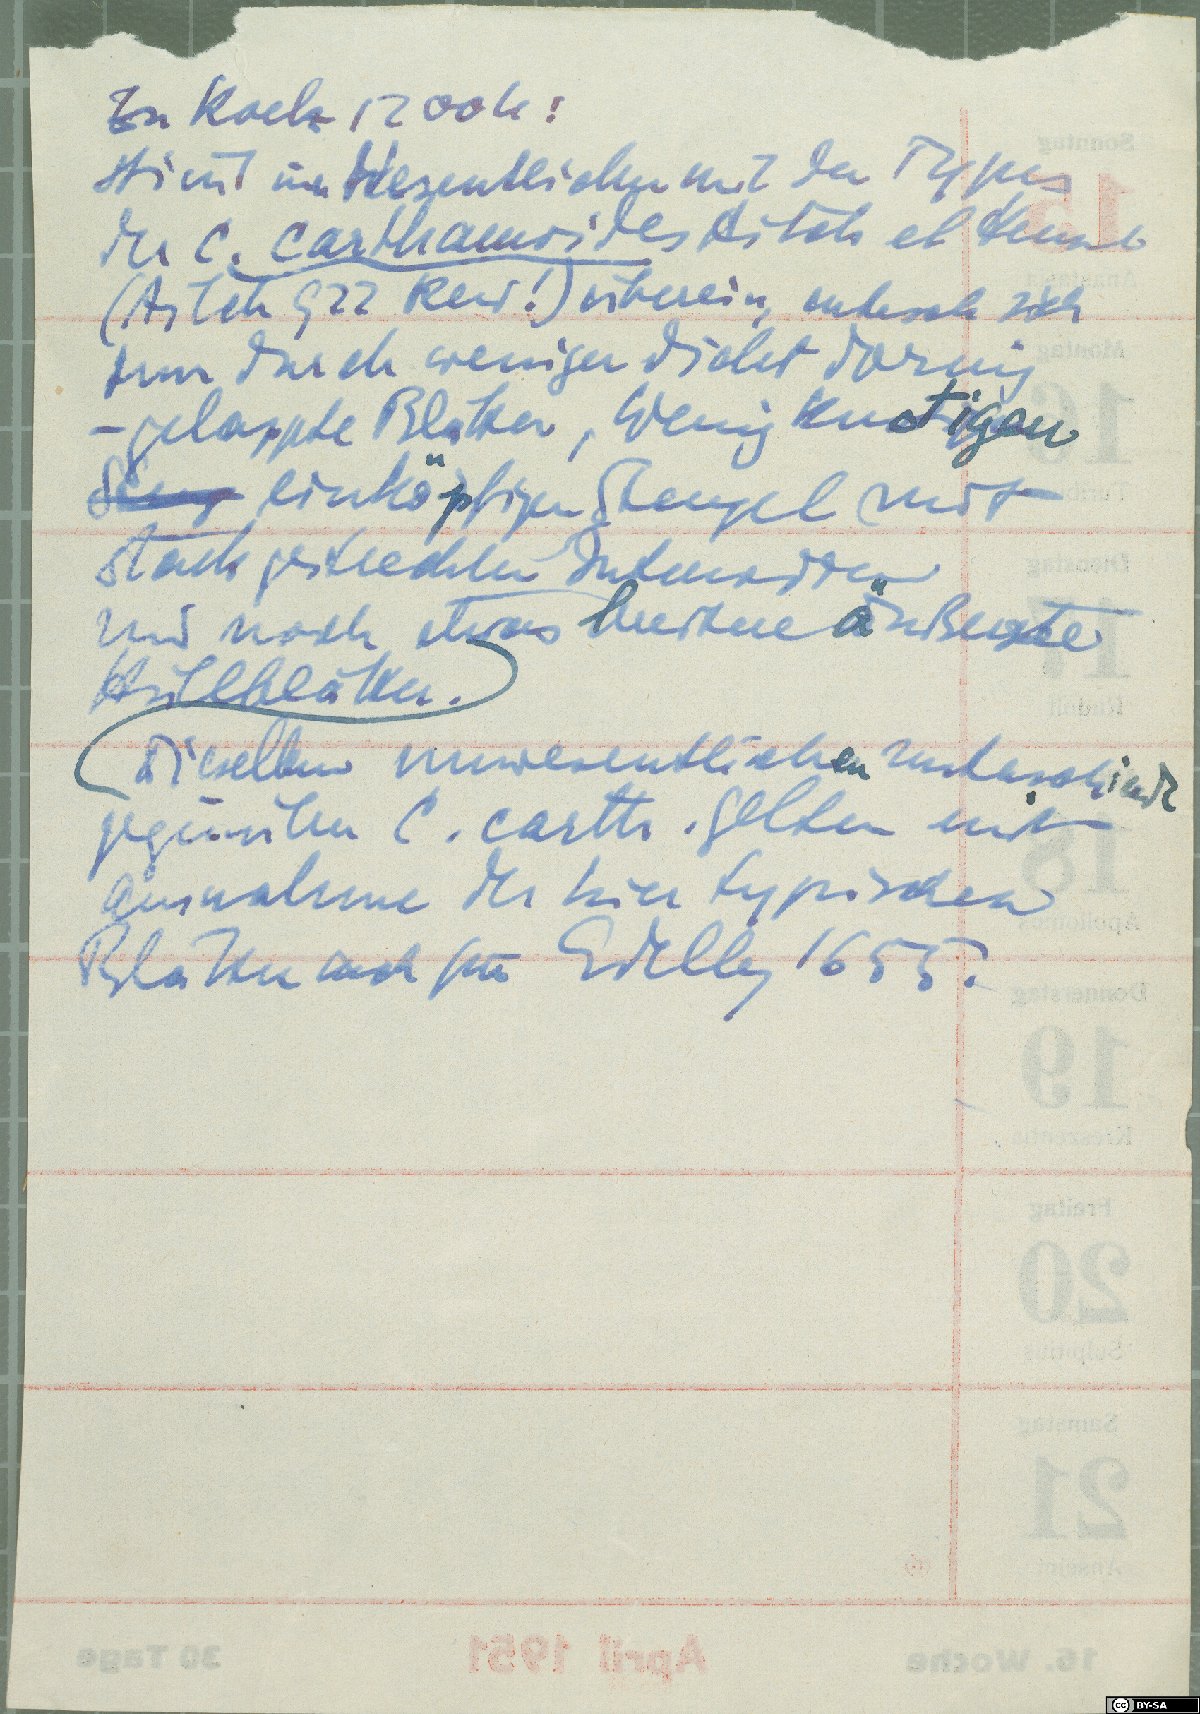 Zu Koch
Stimmt im Wesentlichen mit den Typus
der C. carthamoides Aitch et Hemsl
(Aitch 922 Kew!) überein, untersch sich
nur durch weniger dicht dornig
-gelappte Blätter, wenig
einköpfigen Stengel mit
stark gestreckten Internodien
und noch etwas breitere äußerste
Hüllblätter.
Dieselben unwesentlichen Unterschiede
gegenüber C. carth. gelten mit
Ausnahme der hier typischen
Blätter auch für 1655.
Sonntag
15
Montag
16
Dienstag
17
Rudolf
18
Apollonius
Donnerstag
19
Kreszentia
Freitag
20
Sulpitius
Samstag
21
Anselm
30 Tage April 1951 16. Woche
BY-SA